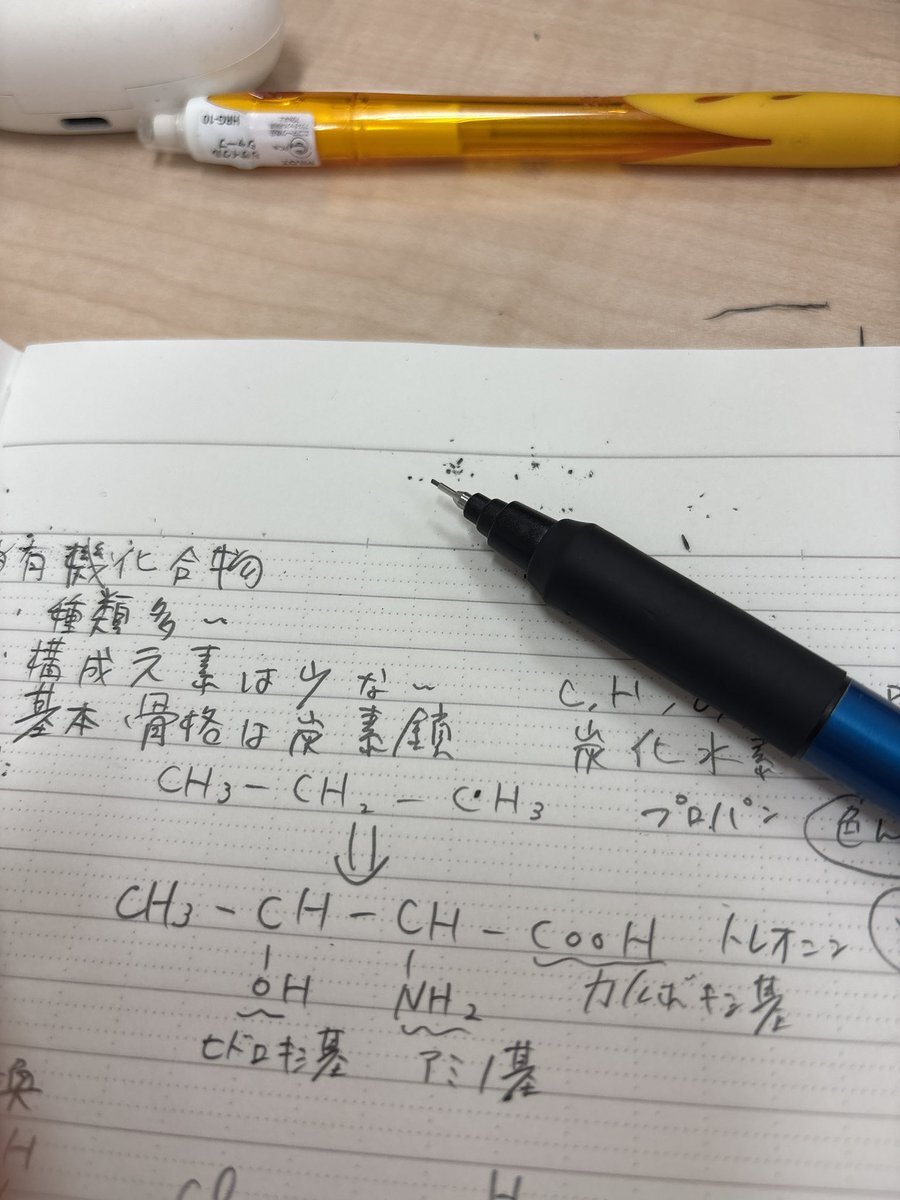 HRG-10
有機化合物
・種類多い
・構成元素は少ない C, H,
基本骨格は炭素鎖 炭化水素
CH3 - CH2 - CH3 プロパン
⇓
CH3 - CH - CH - COOH トレオニン
OH NH2 カルボキシ基
ヒドロキシ基 アミノ基
換
H
Cl H